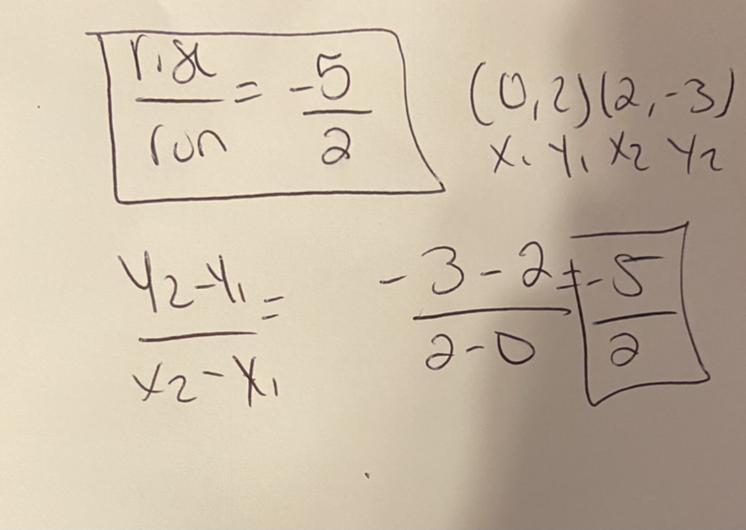 rise/run = -5/2
(0,2)(2,-3)
x₁ y₁ x₂ y₂
y₂-y₁/x₂-x₁ = -3-2/2-0 = -5/2